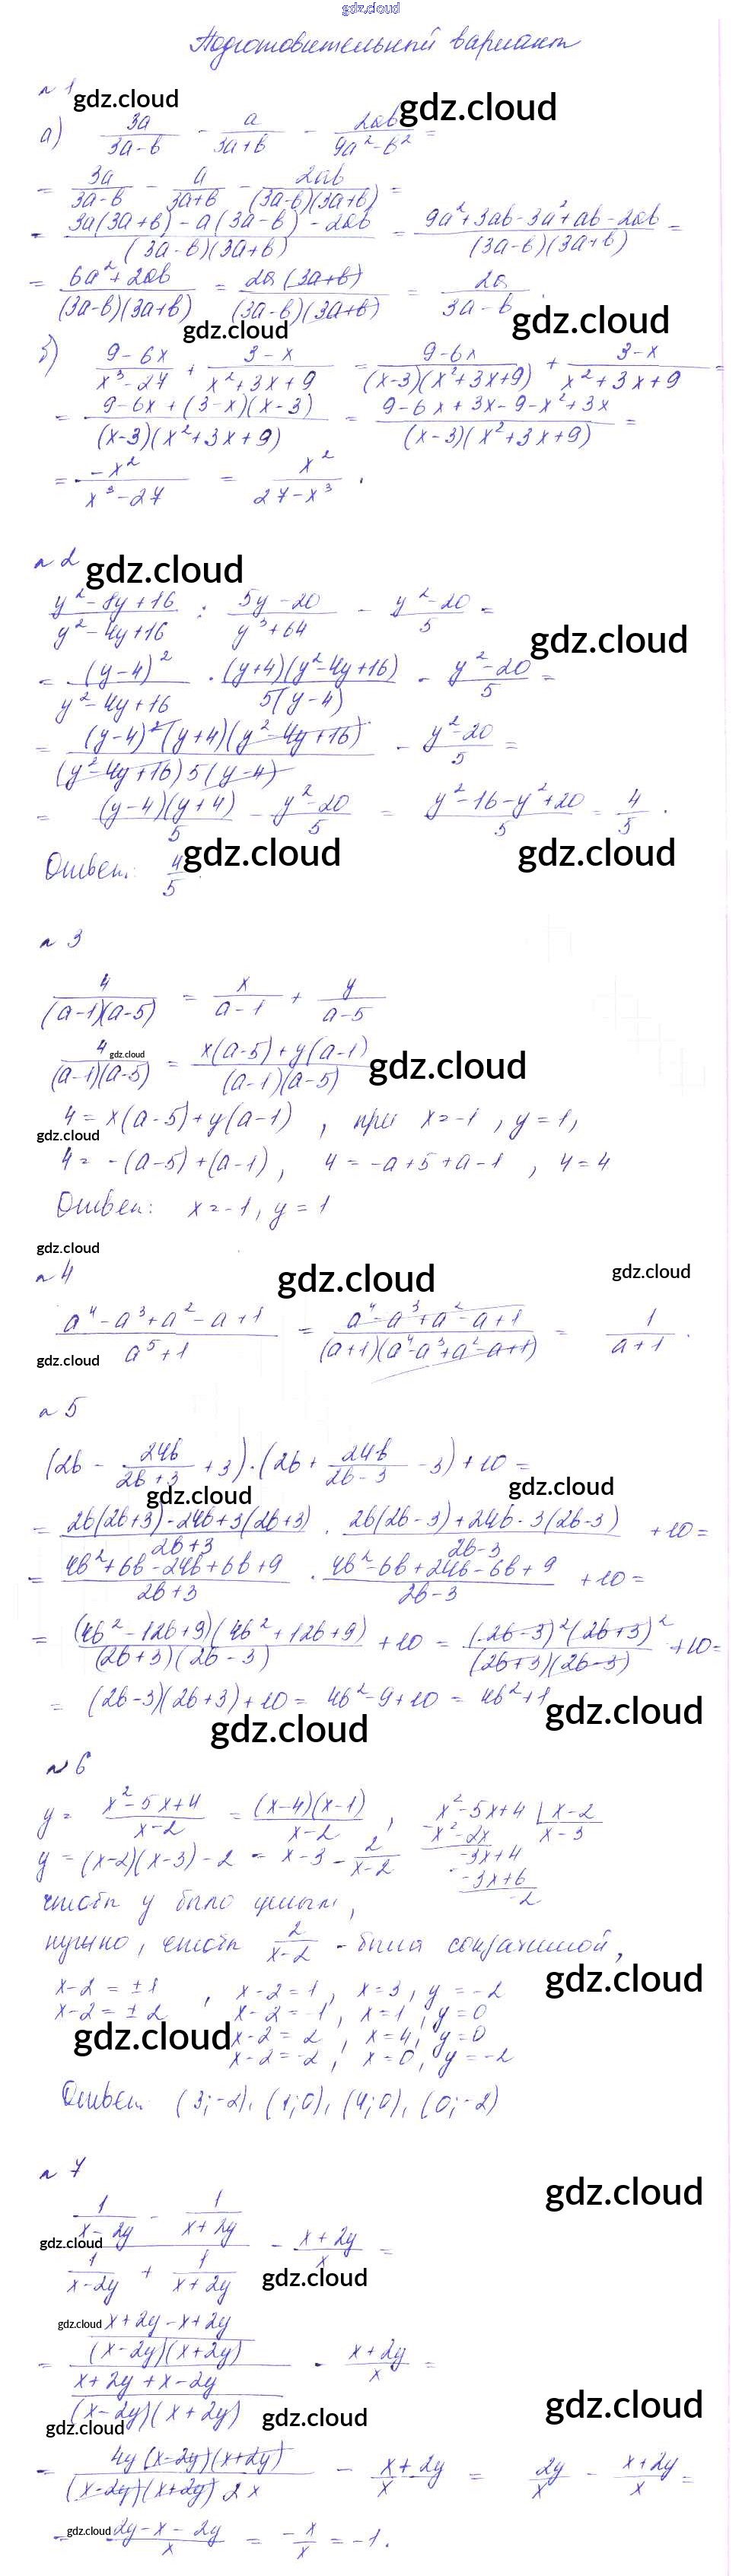 gdz.cloud
Подготовительный вариант
№ 1
gdz.cloud gdz.cloud
а) 3a/(3a-b) - a/(3a+b) - 2ab/(9a²-b²) =
= 3a/(3a-b) - a/(3a+b) - 2ab/((3a-b)(3a+b)) =
= (3a(3a+b) - a(3a-b) - 2ab)/((3a-b)(3a+b)) = (9a²+3ab-3a²+ab-2ab)/((3a-b)(3a+b)) =
= (6a²+2ab)/((3a-b)(3a+b)) = (2a(3a+b))/((3a-b)(3a+b)) = 2a/(3a-b).
gdz.cloud gdz.cloud
б) (9-6x)/(x³-27) + (3-x)/(x²+3x+9) = (9-6x)/((x-3)(x²+3x+9)) + (3-x)/(x²+3x+9) =
= (9-6x+(3-x)(x-3))/((x-3)(x²+3x+9)) = (9-6x+3x-9-x²+3x)/((x-3)(x²+3x+9)) =
= -x²/(x³-27) = x²/(27-x³).
№ 2
gdz.cloud
(y²-8y+16)/(y²-4y+16) : (5y-20)/(y³+64) - (y²-20)/5 =
gdz.cloud
= (y-4)²/(y²-4y+16) · ((y+4)(y²-4y+16))/(5(y-4)) - (y²-20)/5 =
= ((y-4)²(y+4)(y²-4y+16))/((y²-4y+16)5(y-4)) - (y²-20)/5 =
= ((y-4)(y+4))/5 - (y²-20)/5 = (y²-16-y²+20)/5 = 4/5.
Ответ: 4/5.
gdz.cloud gdz.cloud
№ 3
4/((a-1)(a-5)) = x/(a-1) + y/(a-5)
4/((a-1)(a-5)) = (x(a-5)+y(a-1))/((a-1)(a-5))
gdz.cloud gdz.cloud
4 = x(a-5)+y(a-1), при x=-1, y=1,
gdz.cloud
4 = -(a-5)+(a-1), 4 = -a+5+a-1, 4=4
Ответ: x=-1, y=1
gdz.cloud
№ 4
gdz.cloud gdz.cloud
(a⁴-a³+a²-a+1)/(a⁵+1) = (a⁴-a³+a²-a+1)/((a+1)(a⁴-a³+a²-a+1)) = 1/(a+1).
gdz.cloud
№ 5
(2b - 24b/(2b+3) + 3)·(2b + 24b/(2b-3) - 3) + 10 =
gdz.cloud gdz.cloud
= (2b(2b+3)-24b+3(2b+3))/(2b+3) · (2b(2b-3)+24b-3(2b-3))/(2b-3) + 10 =
= (4b²+6b-24b+6b+9)/(2b+3) · (4b²-6b+24b-6b+9)/(2b-3) + 10 =
= ((4b²-12b+9)(4b²+12b+9))/((2b+3)(2b-3)) + 10 = ((2b-3)²(2b+3)²)/((2b+3)(2b-3)) + 10 =
= (2b-3)(2b+3)+10 = 4b²-9+10 = 4b²+1
gdz.cloud gdz.cloud
№ 6
y = (x²-5x+4)/(x-2) = ((x-4)(x-1))/(x-2), x²-5x+4 | x-2
-x²-2x x-3
y = (x-2)(x-3)-2 = x-3 - 2/(x-2) -3x+4
-3x+6
-2
чтобы y было целым,
нужно, чтобы 2/(x-2) - была сократимой,
gdz.cloud
x-2 = ±1, x-2=1, x=3, y=-2
x-2 = ±2 x-2=-1, x=1, y=0
gdz.cloud
x-2=2, x=4, y=0
x-2=-2, x=0, y=-2
Ответ: (3;-2), (1;0), (4;0), (0;-2)
№ 7
gdz.cloud
(1/(x-2y) - 1/(x+2y))/(1/(x-2y) + 1/(x+2y)) - (x+2y)/x =
gdz.cloud gdz.cloud
gdz.cloud
= ((x+2y-x+2y)/((x-2y)(x+2y)))/((x+2y+x-2y)/((x-2y)(x+2y))) - (x+2y)/x =
gdz.cloud gdz.cloud gdz.cloud
= (4y(x-2y)(x+2y))/((x-2y)(x+2y)2x) - (x+2y)/x = 2y/x - (x+2y)/x =
gdz.cloud
= (2y-x-2y)/x = -x/x = -1.